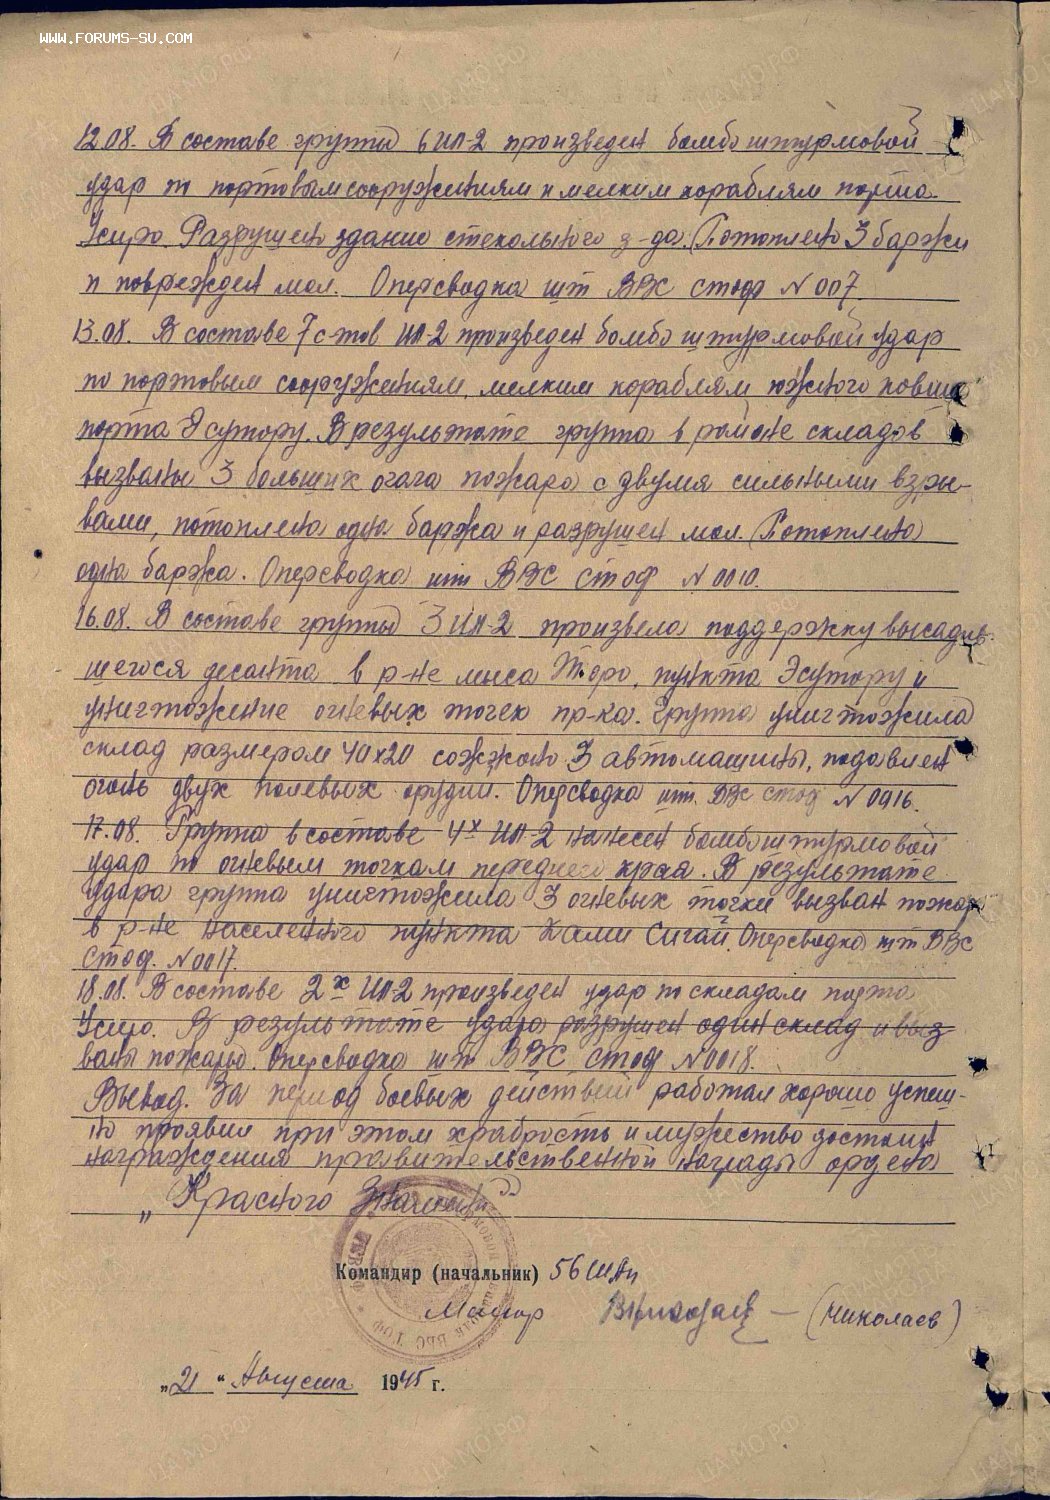 WWW.FORUMS-SU.COM
12.08. В составе группы 6 ИЛ-2 произведен бомбо штурмовой
удар по портовым сооружениям и мелким кораблям порта
Усиро. Разрушено здание стекольного з-да. (Потоплено 3 баржи
и поврежден мол. Оперсводка шт ВВС СТОФ № 007.
13.08. В составе 7 с-тов ИЛ-2 произведен бомбо штурмовой удар
по портовым сооружениям, мелким кораблям южного ковша
порта Эсутору. В результате группа в районе складов
вызваны 3 больших очага пожара с двумя сильными взры-
вами, потоплена одна баржа и разрушен мол. (Потоплено
одна баржа. Оперсводка шт ВВС СТОФ № 0010.
16.08. В составе группы 3 ИЛ-2 произвела поддержку высадив-
шегося десанта в р-не мыса Торо, пункта Эсутору и
уничтожение огневых точек пр-ка. Группа уничтожила
склад размером 40х20 сожжено 3 автомашины, подавлен
огонь двух полевых орудий. Оперсводка шт. ВВС СТОФ № 0016.
17.08. Группа в составе 4х ИЛ-2 нанесен бомбо штурмовой
удар по огневым точкам переднего края. В результате
удара группа уничтожила 3 огневых точки вызван пожар
в р-не населенного пункта Ками Сигай. Оперсводка шт ВВС
СТОФ. № 0017.
18.08. В составе 2х ИЛ-2 произведен удар по складам порта
Усиро. В результате удара разрушен один склад и выз
вано пожары. Оперсводка шт ВВС СТОФ № 0018.
Вывод. За период боевых действий работал хорошо успеш-
но проявил при этом храбрость и мужество достоин
награждения правительственной награды ордена
„Красного Знамени"
Командир (начальник) 56 ШАП
Майор (Николаев)
„21" Августа 1945 г.